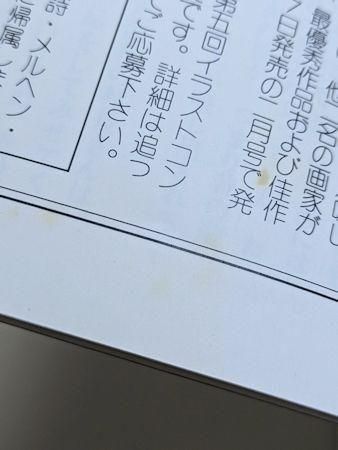 他一名の画家が
最優秀作品および佳作
7日発売の二月号で発
第五回イラストコン
です。詳細は追っ
ご応募下さい。
詩・メルヘン・
に帰属しま